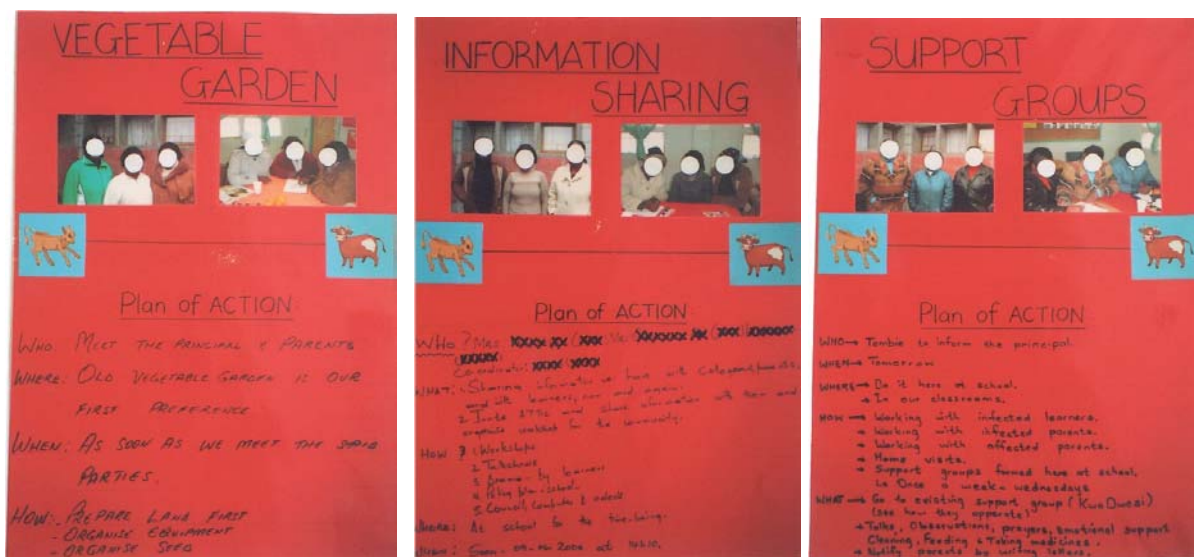 VEGETABLE
GARDEN
Plan of ACTION
WHO: MEET THE PRINCIPAL & PARENTS
WHERE: OLD VEGETABLE GARDEN IS OUR
FIRST PREFERENCE
WHEN: AS SOON AS WE MEET THE
PARTIES.
HOW: - PREPARE LAND FIRST
- ORGANISE EQUIPMENT
- ORGANISE SEED
INFORMATION
SHARING
Plan of ACTION
WHO? Mrs
Co-ordinator:
WHAT: 1. Sharing information
and with learners, now and again.
2. Invite and share information with them and
organise for the community.
HOW? 1. Workshops
2. Talkshows
3. by learners
5.
WHERE: At school for the time-being.
WHEN:
SUPPORT
GROUPS
Plan of ACTION
WHO → to inform the principal.
WHEN → Tomorrow
WHERE → Do it here at school.
→ In our classrooms.
HOW → Working with infected learners.
→ Working with infected parents.
→ Working with affected parents.
→ Home visits.
→ Support groups formed here at school.
Once a week - wednesdays
WHAT → Go to existing support group
(see how they opperate)
→ Talks, Observations, prayers, emotional support
Cleaning, Feeding & Taking medicines.
→ Notify parents by writing letters.